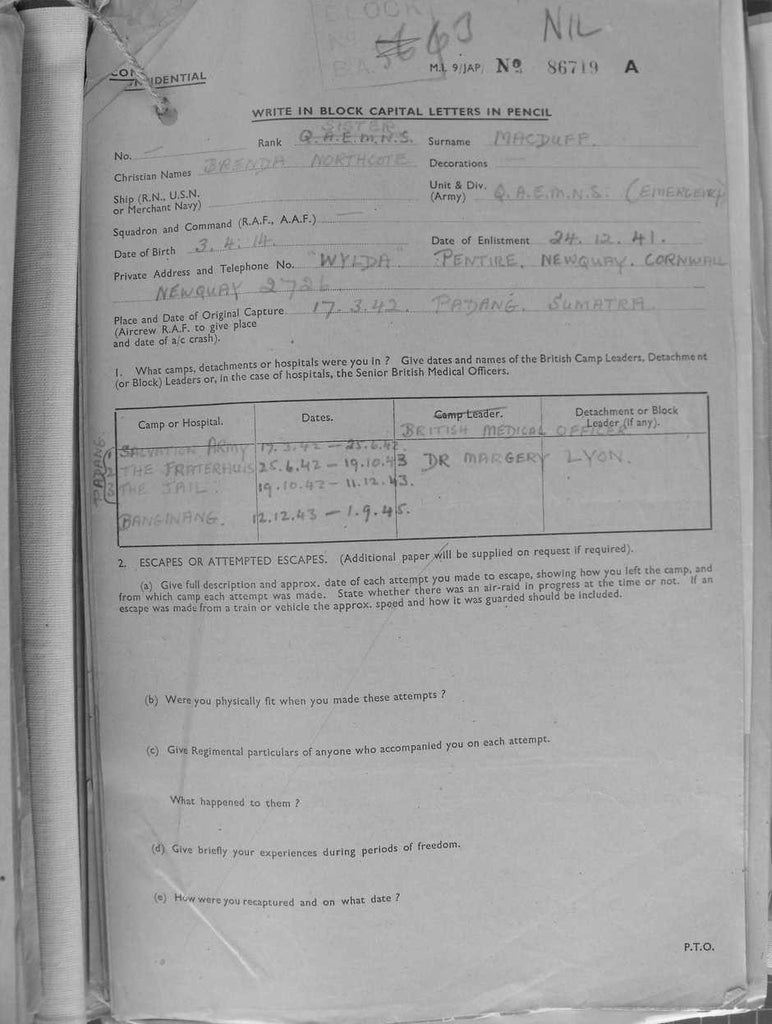 NIL
663
CONFIDENTIAL
M.I. 9/JAP/ No 86719 A
WRITE IN BLOCK CAPITAL LETTERS IN PENCIL
SISTER
No. — Rank Q.A.E.M.N.S. Surname MACDUFF.
Christian Names BRENDA NORTHCOTE Decorations
Ship (R.N., U.S.N. or Merchant Navy) Unit & Div. (Army) Q.A.E.M.N.S. (EMERGENCY)
Squadron and Command (R.A.F., A.A.F.)
Date of Birth 3.4.14. Date of Enlistment 24.12.41.
Private Address and Telephone No. "WYLDA" PENTIRE, NEWQUAY. CORNWALL
NEWQUAY 2726
Place and Date of Original Capture 17.3.42. PADANG. SUMATRA.
(Aircrew R.A.F. to give place
and date of a/c crash).
1. What camps, detachments or hospitals were you in ? Give dates and names of the British Camp Leaders, Detachment
(or Block) Leaders or, in the case of hospitals, the Senior British Medical Officers.
Camp or Hospital. Dates. Camp Leader. Detachment or Block Leader (if any).
BRITISH MEDICAL OFFICER
PADANG.
1 SALVATION ARMY 17.3.42 — 25.6.42.
2 THE FRATERHUIS 25.6.42 — 19.10.43 DR MARGERY LYON.
3 THE JAIL. 19.10.43 — 11.12.43.
BANGINANG. 12.12.43 — 1.9.45.
2. ESCAPES OR ATTEMPTED ESCAPES. (Additional paper will be supplied on request if required).
(a) Give full description and approx. date of each attempt you made to escape, showing how you left the camp, and
from which camp each attempt was made. State whether there was an air-raid in progress at the time or not. If an
escape was made from a train or vehicle the approx. speed and how it was guarded should be included.
(b) Were you physically fit when you made these attempts ?
(c) Give Regimental particulars of anyone who accompanied you on each attempt.
What happened to them ?
(d) Give briefly your experiences during periods of freedom.
(e) How were you recaptured and on what date ?
P.T.O.